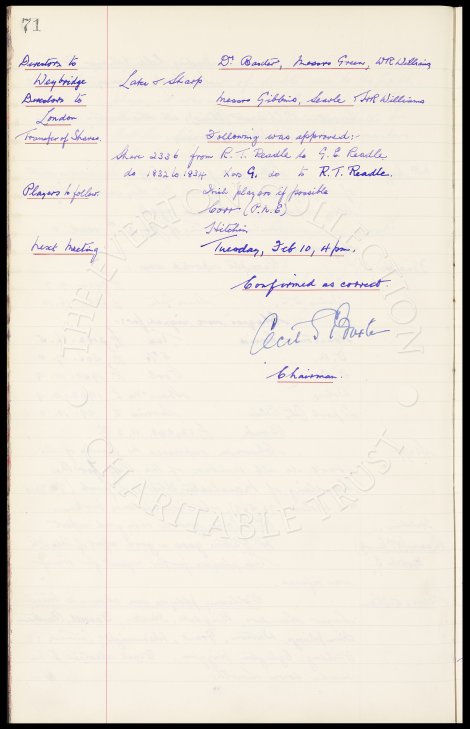 71
Directors to Dr Baxter, Messrs Green, W R Williams
Weybridge Lake & Sharp
Directors to Messrs Gibbins, Searle & T H R Williams
London
Transfer of Shares. Following was approved:-
Share 2336 from R. T. Readle to G. E. Readle
do 1832 to 1834 G. do to R. T. Readle.
Players to follow. Irish players if possible
Corr (P.N.E)
Hitchin
Next Meeting Tuesday, Feb 10, 4 pm.
Confirmed as correct
Cecil S Baxter
Chairman.
THE EVERTON COLLECTION
CHARITABLE TRUST